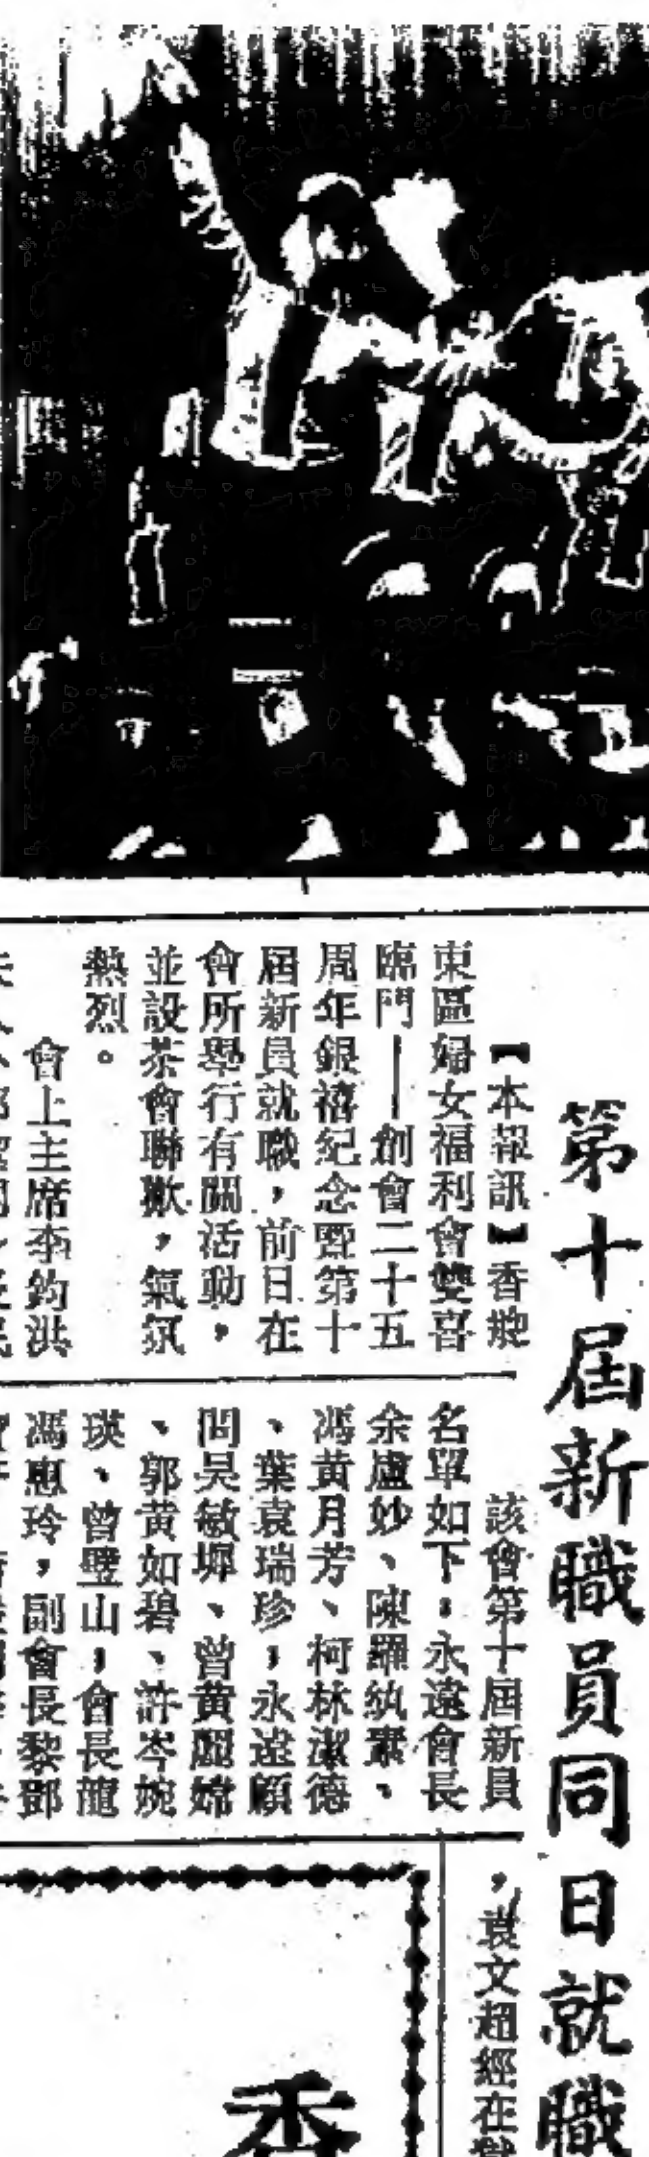 第十屆新職員同日就職
【本報訊】香港
東區婦女福利會雙喜
臨門——創會二十五
周年銀禧紀念暨第十
屆新員就職，前日在
會所舉行有關活動，
並設茶會聯歡，氣氛
熱烈。
會上主席李鈞洪
該會第十屆新員
名單如下：永遠會長
余盧妙、陳羅紈素、
馮黃月芳、柯林潔德
、葉袁瑞珍，永遠顧
問吳敏墀、曾黃麗嫦
、郭黃如碧、許岑婉
瑛、曾璧山，會長龍
馮惠玲，副會長黎鄧
，袁文超經在獄
香